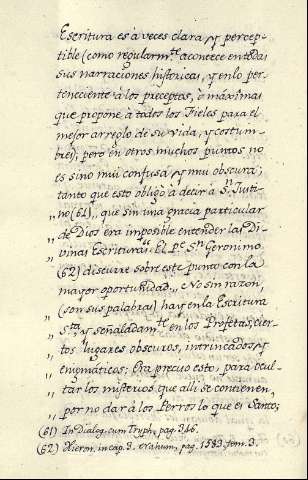 Escritura es à veces clara, y percep-
tible (como regularm.te acontece en todas
sus narraciones historicas, y en lo per-
teneciente à los preceptos, ò maximas
que propone à todos los Fieles para el
mejor arreglo de su vida, y costum-
bres); pero en otros muchos puntos no
es sino mui confusa, y mui obscura;
tanto que esto obligò à decir à S.n Justi-
„ no (61) „ que sin una gracia particular
„ de Dios era imposible entender las Di-
„ vinas Escrituras „ El P.e S.n Geronimo
(62) discurre sobre este punto con la
mayor oportunidad „ No sin razon,
„ (son sus palabras) hay en la Escritura
„ S.ta, y señaladam.te en los Profetas, cier-
„ tos lugares obscuros, intrincados, y
„ enigmaticos; Era preciso esto, para ocul-
„ tar los misterios que alli se contienen,
„ por no dar à los Perros lo que es Santo;
(61) In Dialog. cum Tryph. pag. 346.
(62) Hieron. in cap. 3. Nahum, pag. 1583. tom. 3.